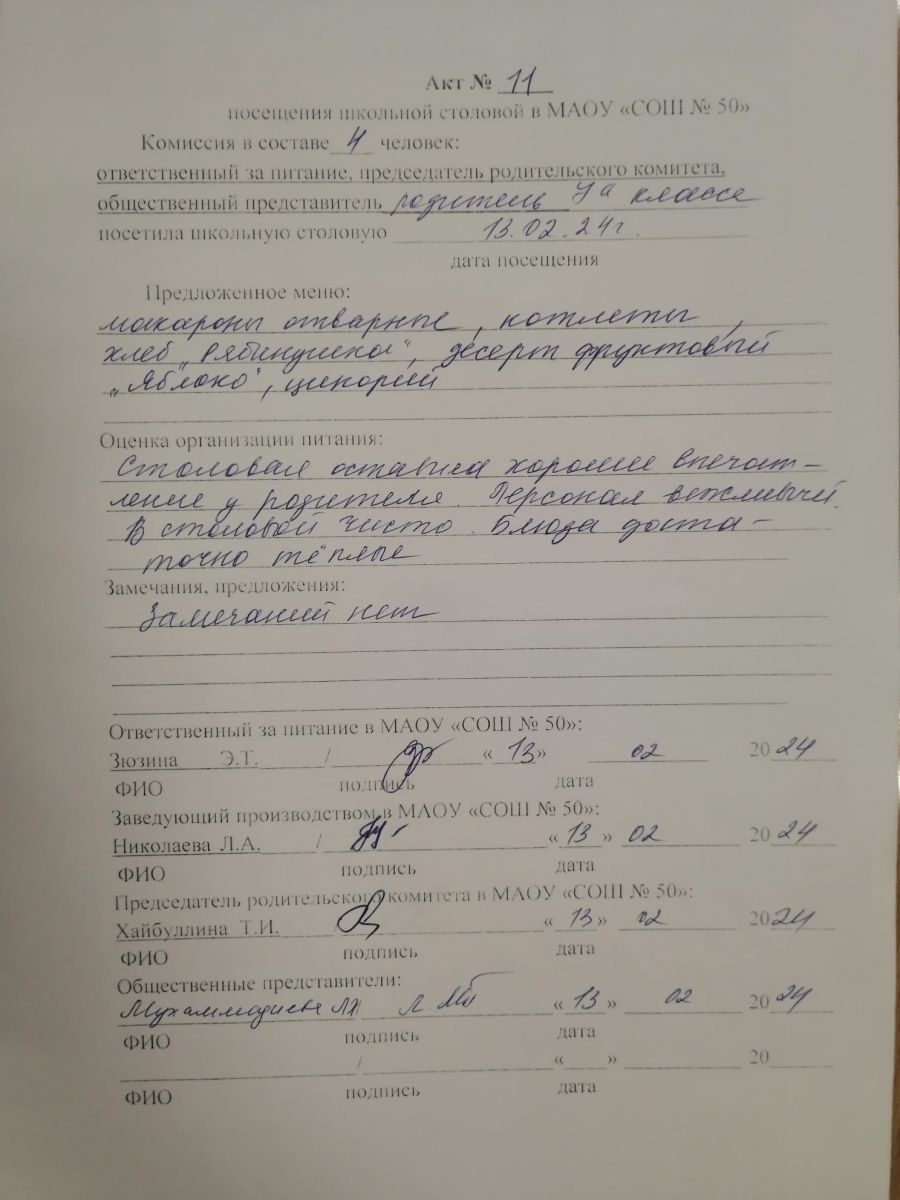 Акт № 11
посещения школьной столовой в МАОУ «СОШ № 50»
Комиссия в составе 4 человек:
ответственный за питание, председатель родительского комитета,
общественный представитель родитель 7а классе
посетила школьную столовую 13.02.24г.
дата посещения
Предложенное меню:
макароны отварные, котлеты,
хлеб „Рябинушка", десерт фруктовый
„Яблоко", цикорий
Оценка организации питания:
Столовая оставила хорошее впечат-
ление у родителя. Персонал вежливый.
В столовой чисто. Блюда доста-
точно тёплые
Замечания, предложения:
Замечаний нет
Ответственный за питание в МАОУ «СОШ № 50»:
Зюзина Э.Т. / «13» 02 2024
ФИО подпись дата
Заведующий производством в МАОУ «СОШ № 50»:
Николаева Л.А. / «13» 02 2024
ФИО подпись дата
Председатель родительского комитета в МАОУ «СОШ № 50»:
Хайбуллина Т.И. «13» 02 2024
ФИО подпись дата
Общественные представители:
Мухаммадиева «13» 02 2024
ФИО подпись дата
/ « » 20
ФИО подпись дата